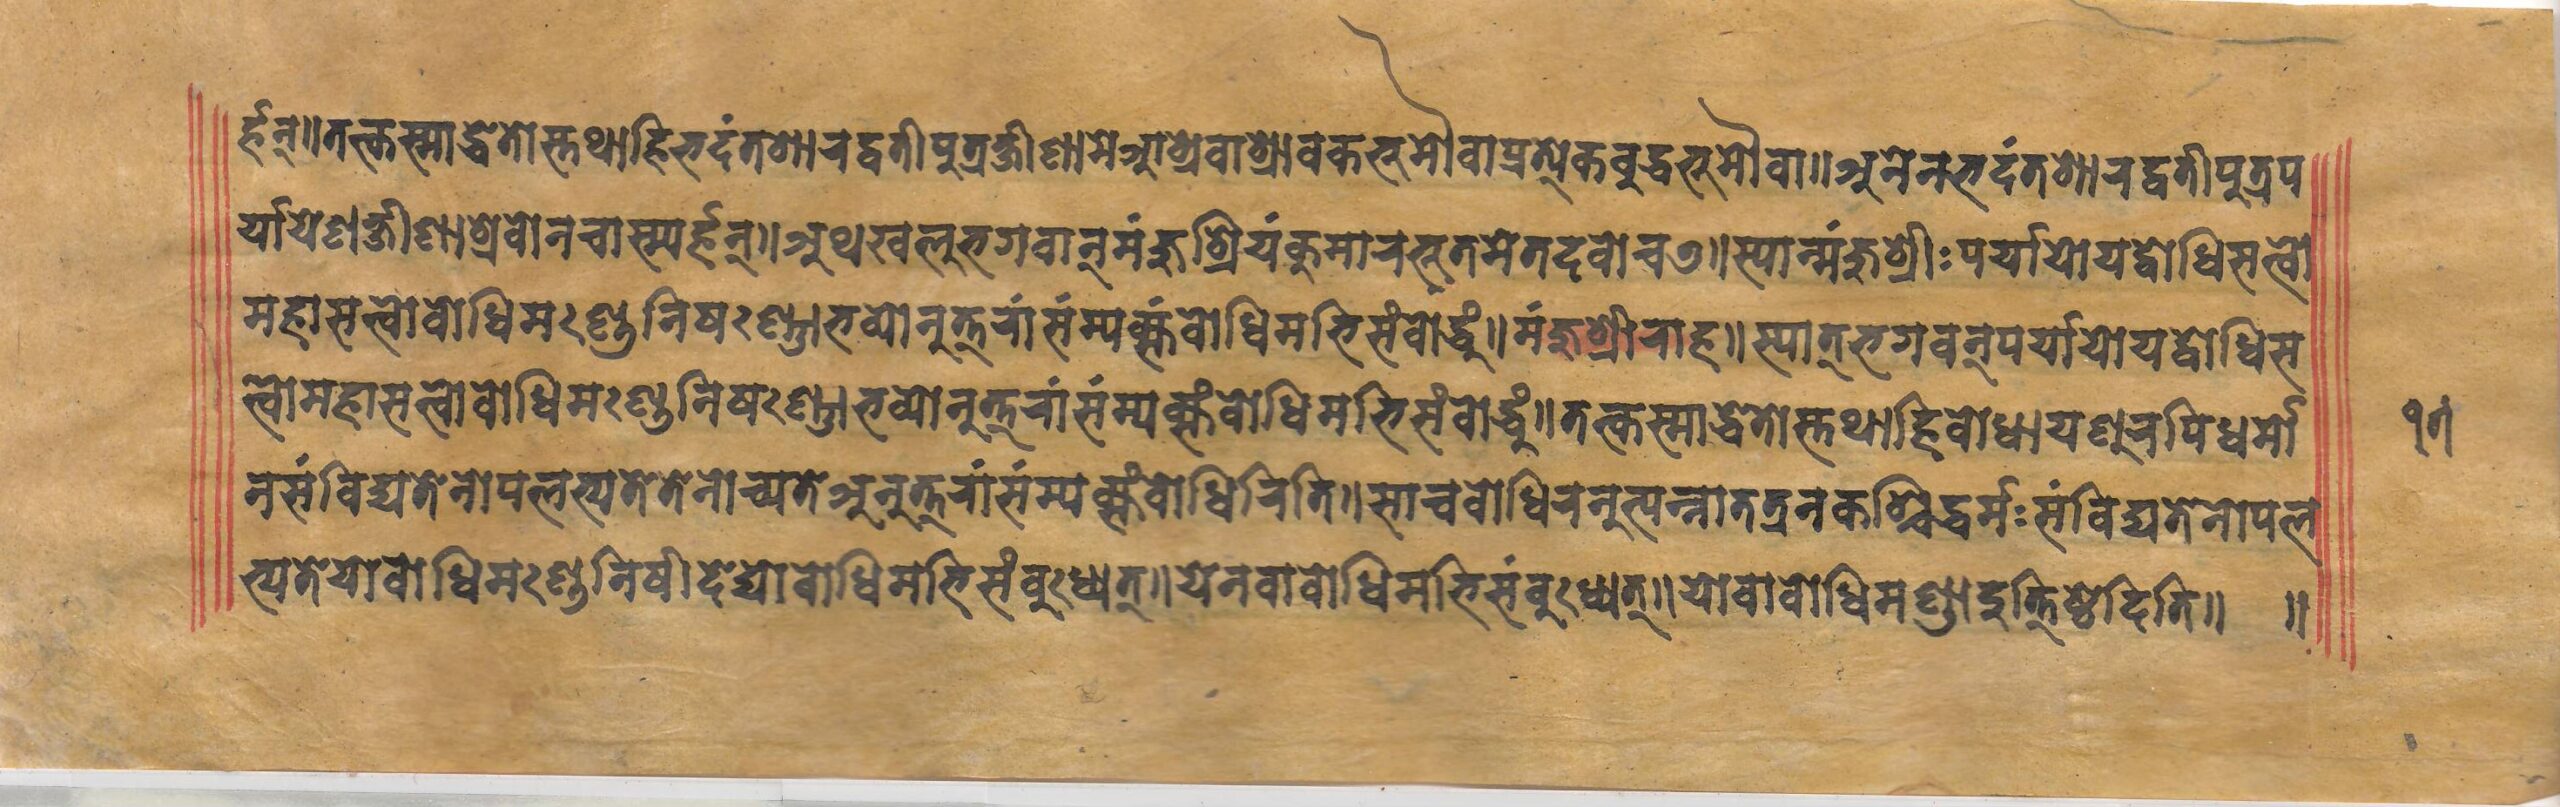 र्हन्॥तत्कस्माद्धेतोस्तथाहिभदंतशारद्वतीपुत्रक्षीणामेआश्रवाश्रावकभूमौवाप्रत्येकबुद्धभूमौवा॥अनेनभदंतशारद्वतीपुत्रप
र्यायेणक्षीणाश्रवोनचास्म्यर्हन्॥अथखलुभगवान्मंजुश्रियंकुमारभूतमेतदवोचत्॥स्यान्मंजुश्रीःपर्यायोयद्बोधिसत्वो
महासत्वोबोधिमण्डेनिषण्णोभव्योनुत्तरांसंम्यक्संबोधिमभिसंबोद्धुं॥मंजुश्रीराह॥स्यात्भगवन्पर्यायोयद्बोधिस
त्वोमहासत्वोबोधिमण्डेनिषण्णोभव्योनुत्तरांसंम्यक्संबोधिमभिसंबोद्धुं॥तत्कस्माद्धेतोस्तथाहिबोधायणुरपिधर्मो
नसंविद्यतेनोपलभ्यतेतेनोच्यतेअनुत्तरांसंम्यक्संबोधिरिति॥साचबोधिरनुत्पन्नातत्रनकश्चिद्धर्मःसंविद्यतेनोपल
भ्यतेयोबोधिमण्डेनिषीदेद्योबोधिमभिसंबुध्येत्॥येनवाबोधिमभिसंबुध्येत्॥योवाबोधिमण्डादुत्तिष्ठेदिति॥ ॥